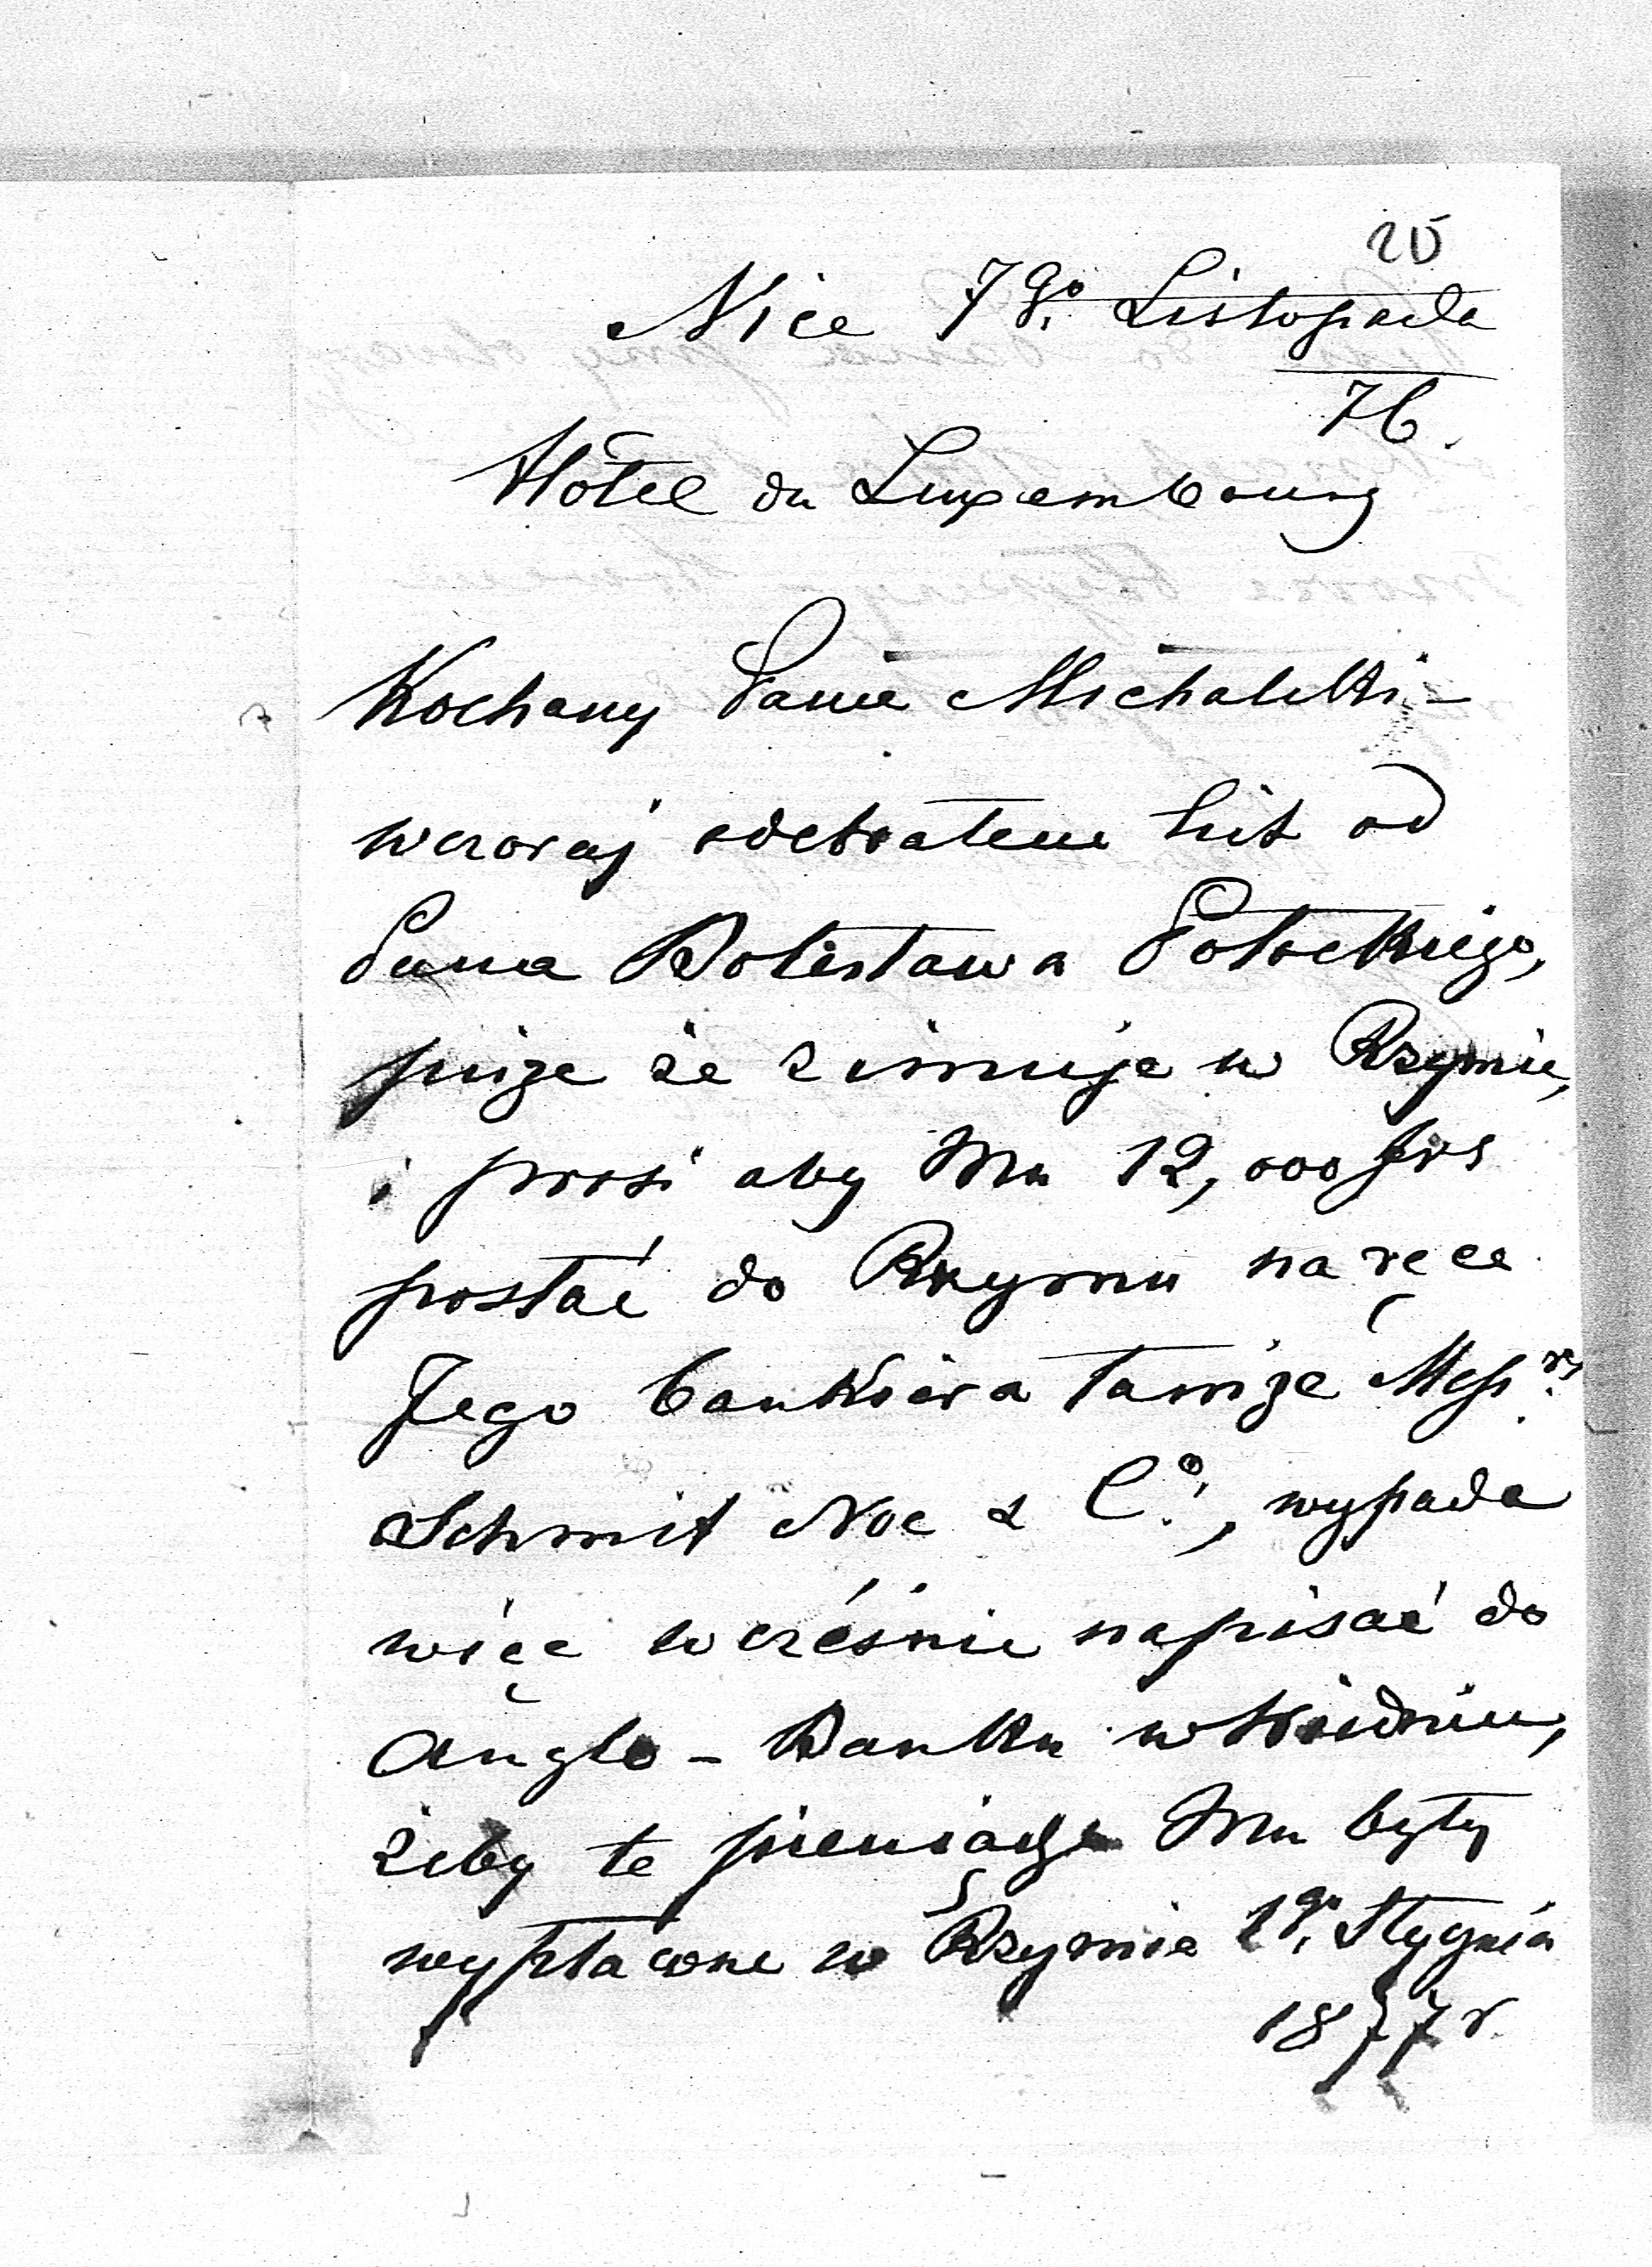 25
Nice 7go Listopada
76.
Hôtel du Luxembourg
Kochany Panie Michalski -
wczoraj odebrałem list od
Pana Bolesława Potockiego,
pisze że zimuje w Rzymie,
i prosi aby Mu 12,000 frs
posłać do Rzymu na ręce
Jego bankiera tamże Messrs
Schmit Noe & Co, wypada
więc wcześnie napisać do
Anglo - Banku w Wiedniu,
żeby te pieniądze Mu były
wypłacone w Rzymie 1go Stycznia
1877 r.